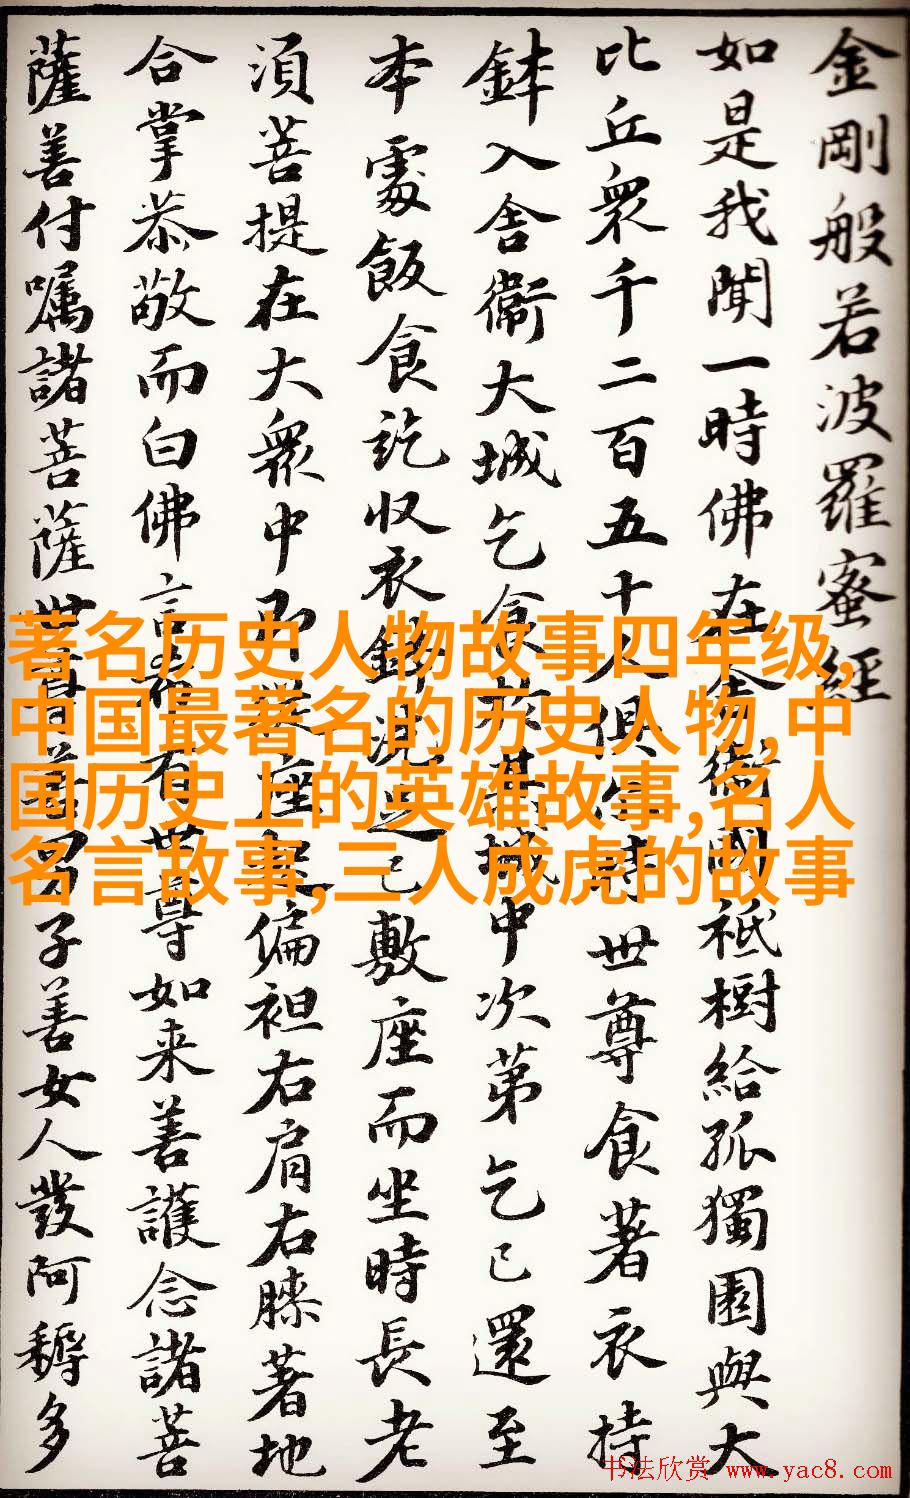 金剛般若波羅蜜經
如是我聞一時佛在舍衛國祇樹給孤獨園與大
比丘衆千二百五十人俱尒時世尊食著衣持
鉢入舍衛大城乞食於其城中次第乞已還至
本處飯食訖収衣鉢洗足已敷座而坐時長老
湏菩提在大衆中即從座起偏袒右肩右膝著地
合掌恭敬而白佛言希有世尊如来善護念諸菩
薩善付嘱諸菩薩世尊善男子善女人發阿耨多
著名历史人物故事四年级,
中国最著名的历史人物,中
国历史上的英雄故事,名人
名言故事,三人成虎的故事
书法欣赏 www.yac8.com